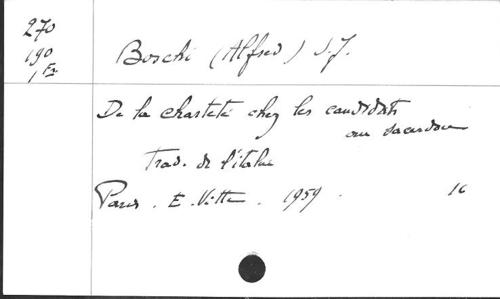 270
190
1 Fr
Boschi (Alfred) S.J.
De la chasteté chez les candidats
au sacerdoce
Trad. de l'italien
Paris. E. Vitte. 1959. 16